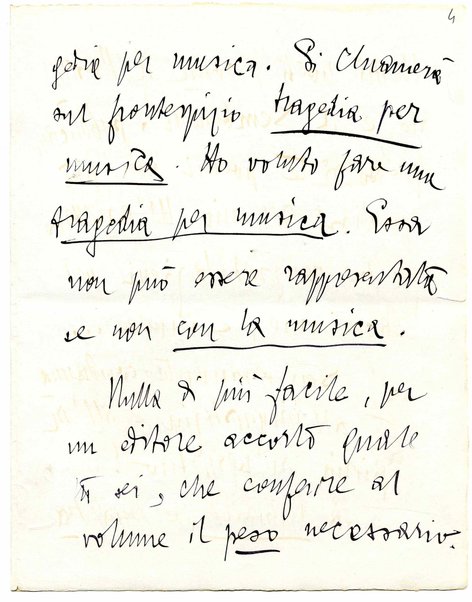 4
gedia per musica. Si chiamerà
sul frontespizio tragedia per
musica. Ho voluto fare una
tragedia per musica. Essa
non può essere rappresentata
se non con la musica.
Nulla di più facile, per
un editore accorto quale
tu sei, che conferire al
volume il peso necessario.